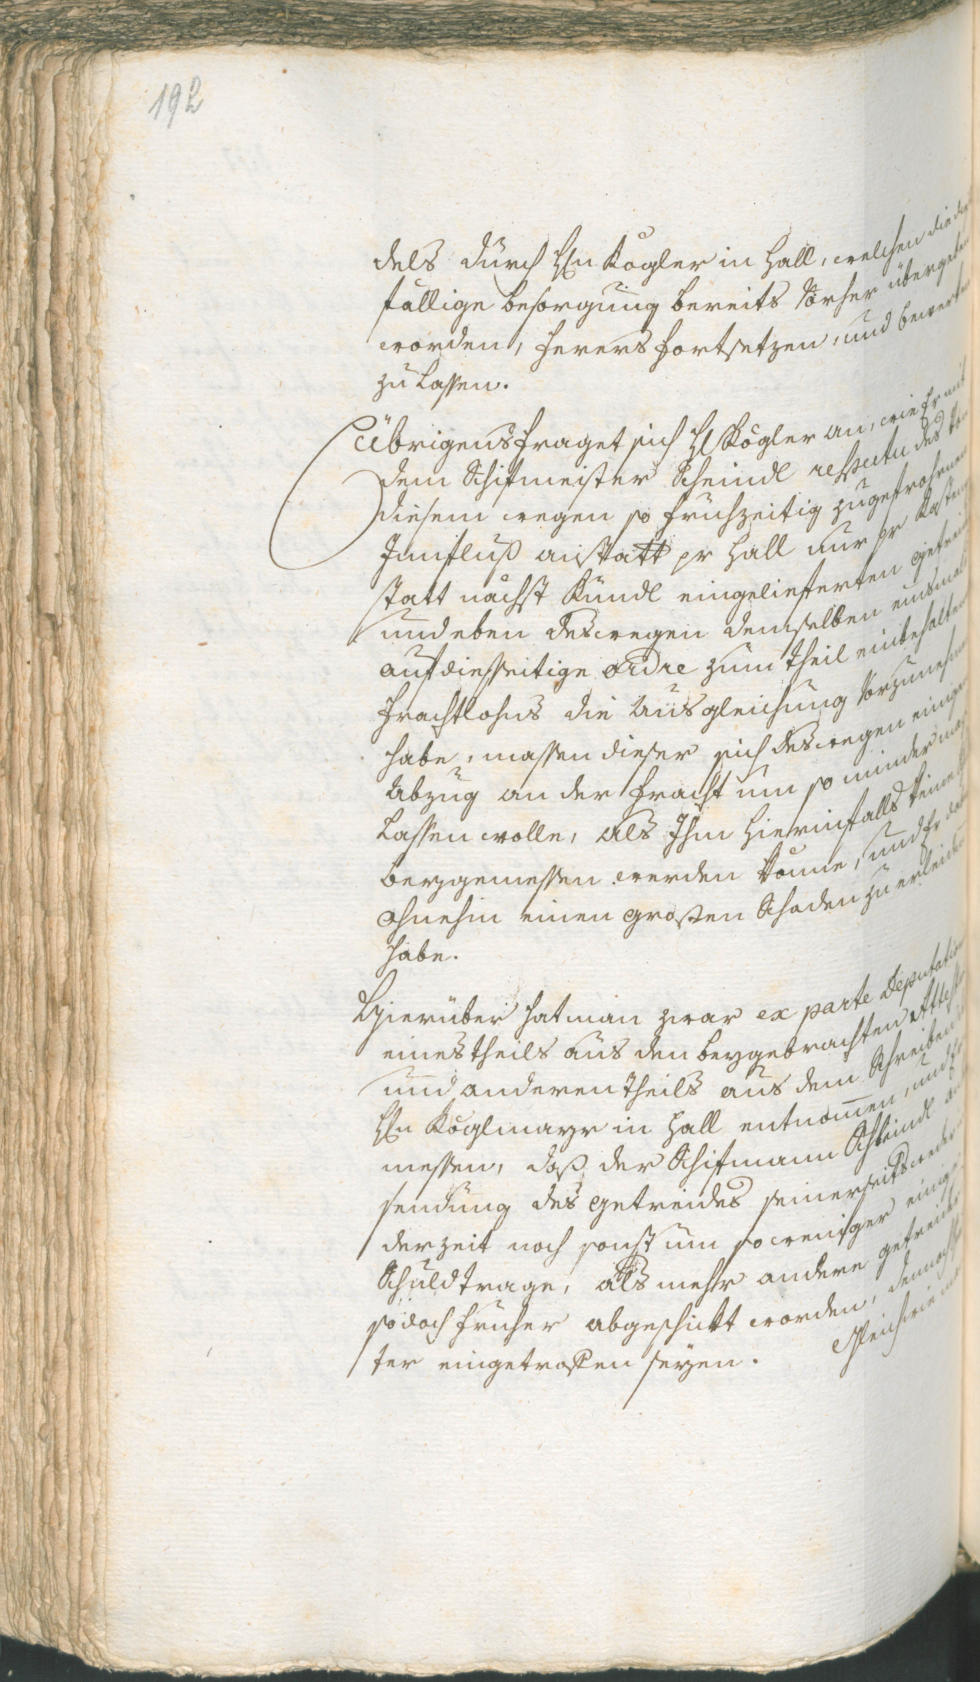 192
dels durch Hn Kogler in Hall, welchem die dies
fällige besorgung bereits vorher übergeben
worden, ferers fortsetzen, und bewerken
zu lassen.
Übrigens fraget sich H Kogler an, wie Er mit
dem Schifmeister Scheindl respectu des von
diesem wegen so fruhzeitig zugefrohrnen
Innfluß anstatt pr Hall nur pr Kasten
statt nächst Kundl eingelieferten getreid
und eben deswegen demselben
auf diesseitige ordre zum theil einbehaltenen
Frachtlohns die Ausgleichung vorzunehmen
habe, massen dieser sich deswegen einigen
Abzug an der Fracht um so minder machen
lassen wolle, als Ihm hierinfalls keine
beygemessen werden könne, und Er
ohnehin einen grossen Schaden zu erleiden
habe.
Hierüber hat man zwar ex parte Deputation
eines theils aus den beygebrachten Attest
und anderen theils aus dem Schreiben
Hn Koglmayr in Hall entnom̄en, und
messen, daß der Schifmann Scheindl an
sendung des getreides seinerseits weder
der zeit noch sonst um so weniger einige
Schuld trage, als mehr andere getreid
so doch früher abgeschickt worden, dennoch
ter eingetroffen seyen.
Gleichwie